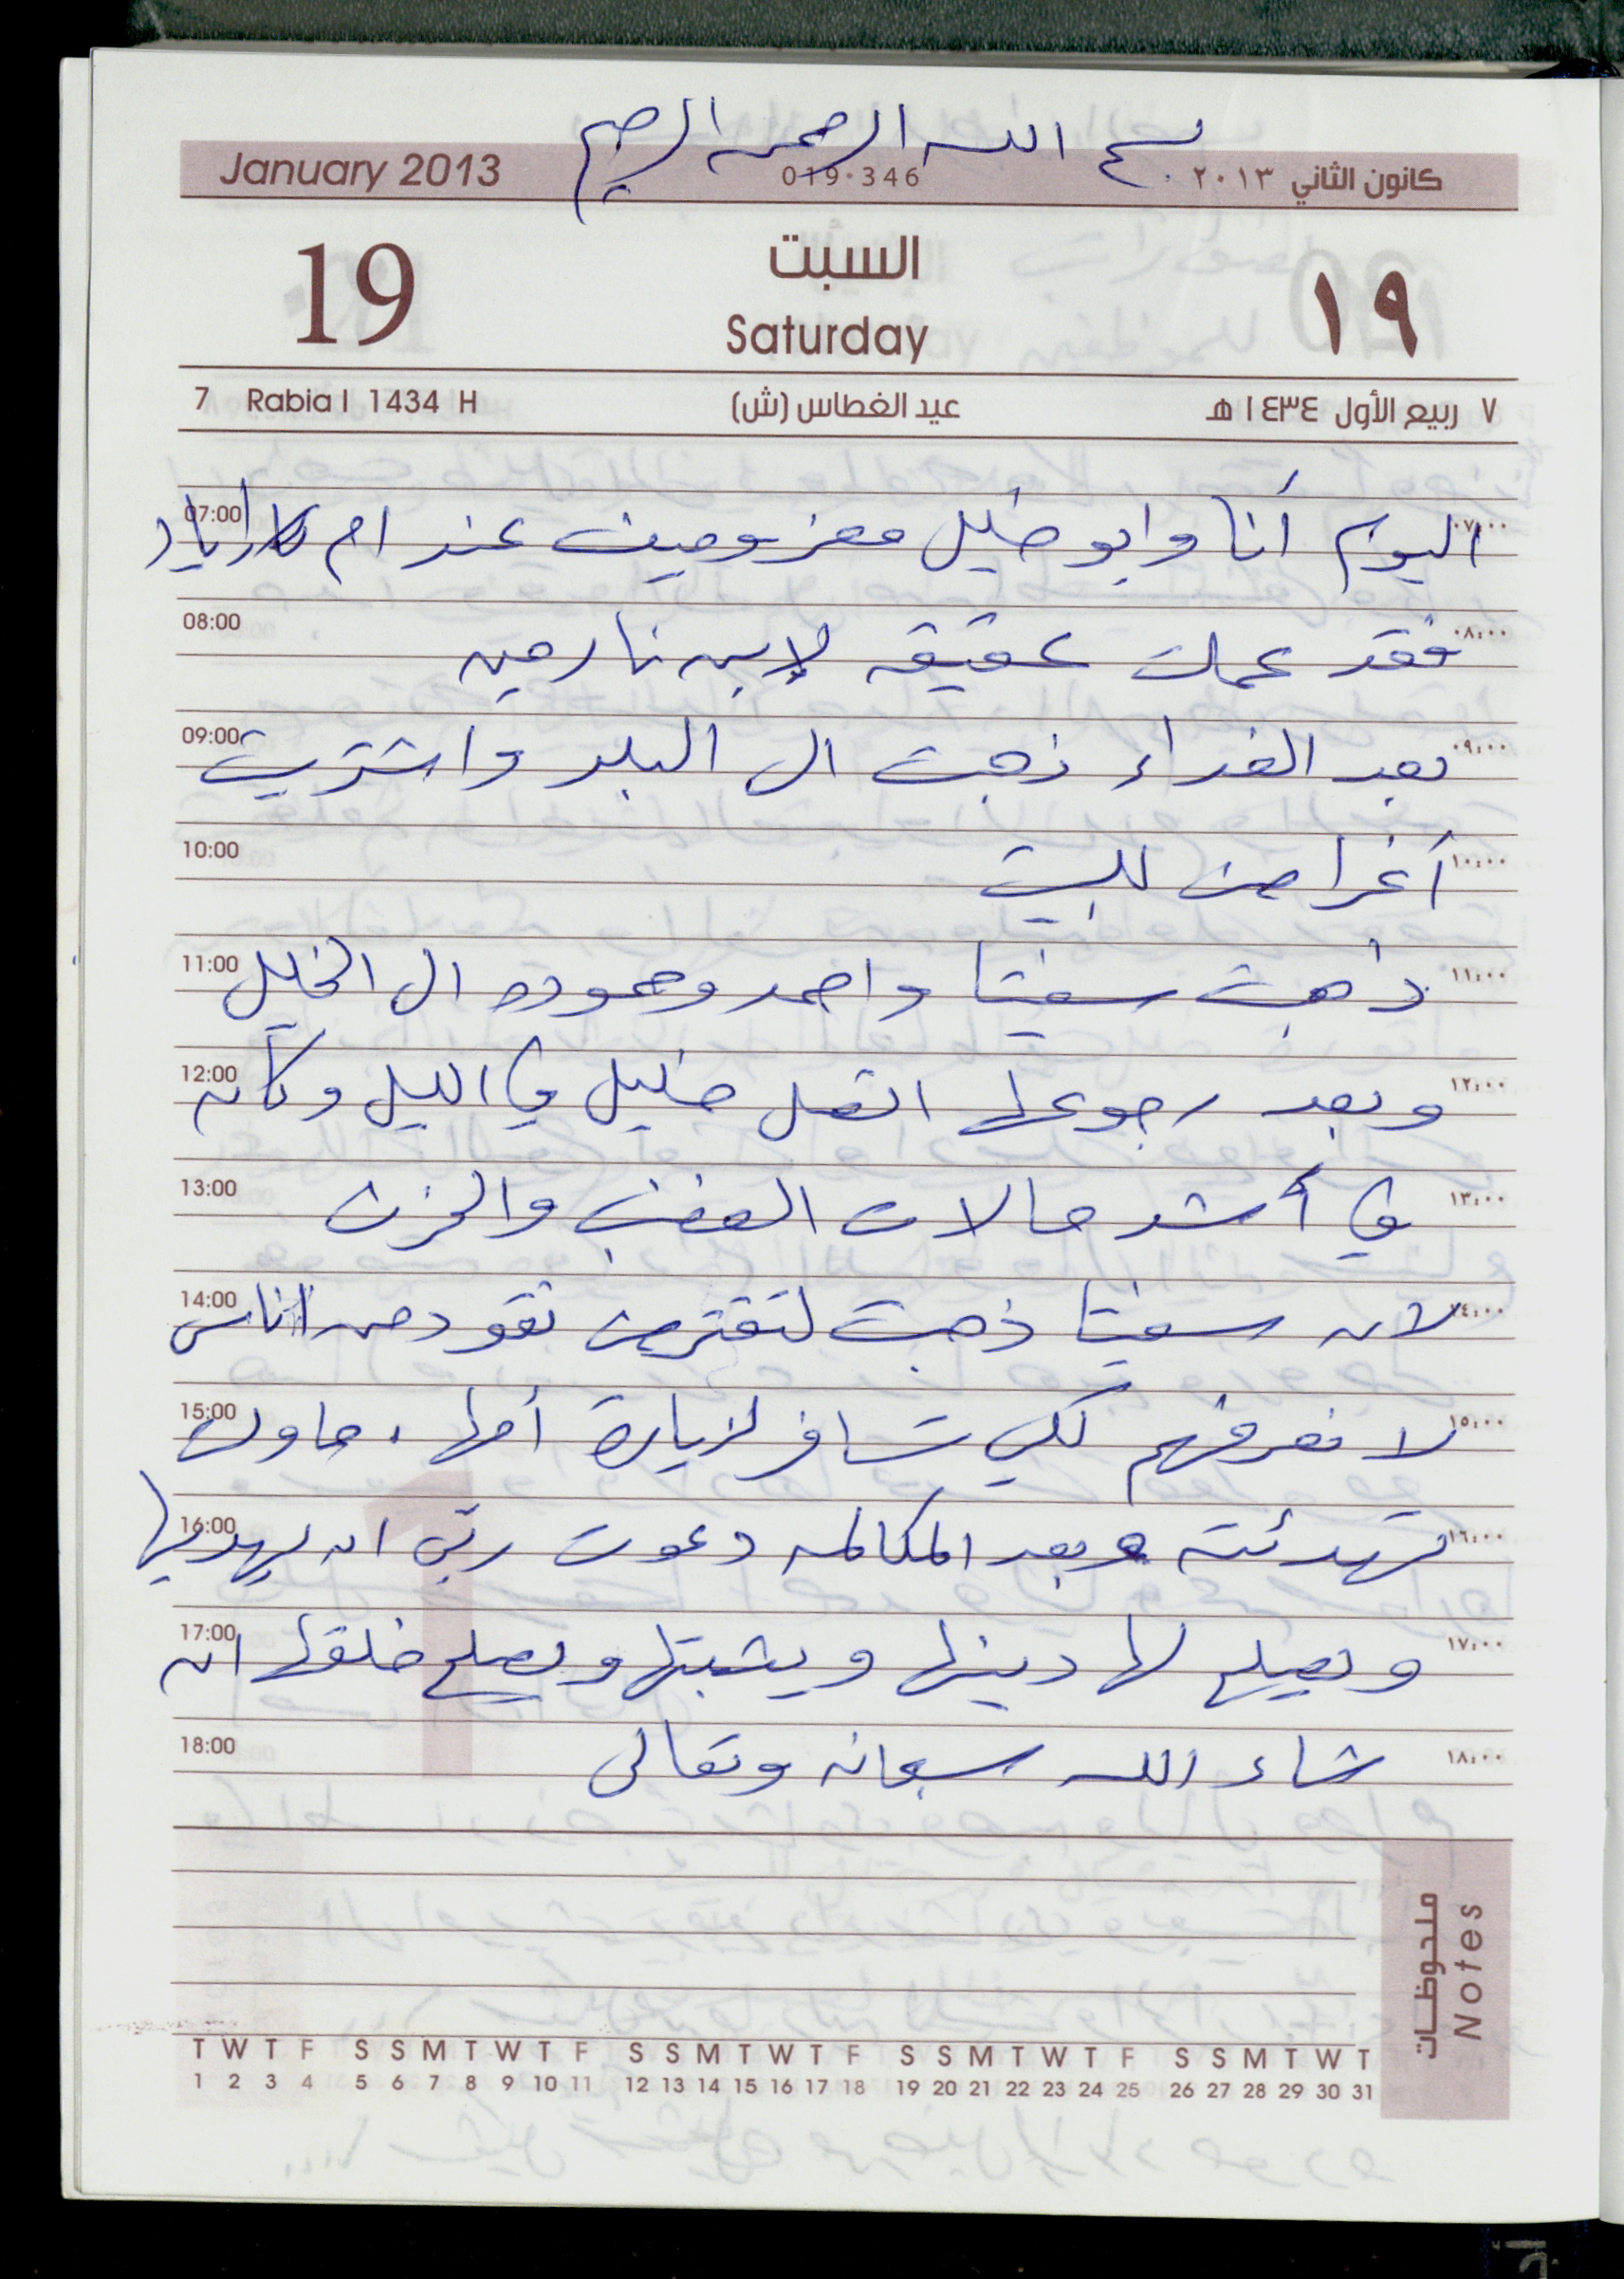 بسم الله الرحمن الرحيم
January 2013 019·346 كانون الثاني ٢٠١٣
19 السبت ١٩
Saturday
7 Rabia I 1434 H عيد الغطاس (ش) ٧ ربيع الأول ١٤٣٤ هـ
07:00 اليوم أنا وابو خليل معزومين عند ام اياد ٠٧:٠٠
08:00 فقد عملت عقيقه لابن نارمين ٠٨:٠٠
09:00 بعد الغداء ذهبت الى البلد واشتريت ٠٩:٠٠
10:00 أغراض للبيت ١٠:٠٠
11:00 ذهبت سفيتا واحمد وحموده الى الخليل ١١:٠٠
12:00 وبعد رجوعها اتصل خليل في الليل وكان ١٢:٠٠
13:00 في أشد حالات الغضب والحزن ١٣:٠٠
14:00 لان سفيتا ذهبت لتقترض نقود من اناس ١٤:٠٠
15:00 لا نعرفهم لكي تسافر لزيارة أمها . حاولت ١٥:٠٠
16:00 تهدئته وبعد المكالمه دعوت ربي ان يهديها ١٦:٠٠
17:00 ويصلح لها دينها ويثبتها ويصلح خلقها ان ١٧:٠٠
18:00 شاء الله سبحانه وتعالى ١٨:٠٠
ملحوظات
Notes
T W T F S S M T W T F S S M T W T F S S M T W T F S S M T W T
1 2 3 4 5 6 7 8 9 10 11 12 13 14 15 16 17 18 19 20 21 22 23 24 25 26 27 28 29 30 31